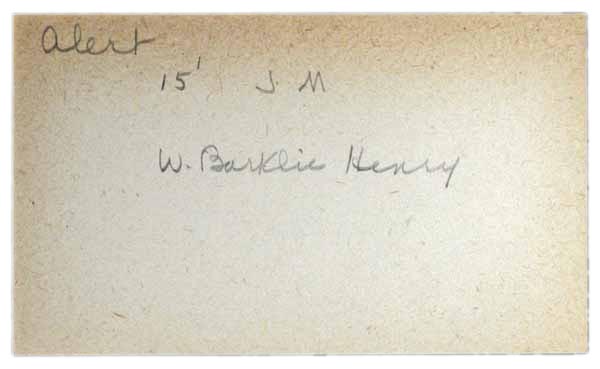 Alert
15' J. M
W. Barklie Henry